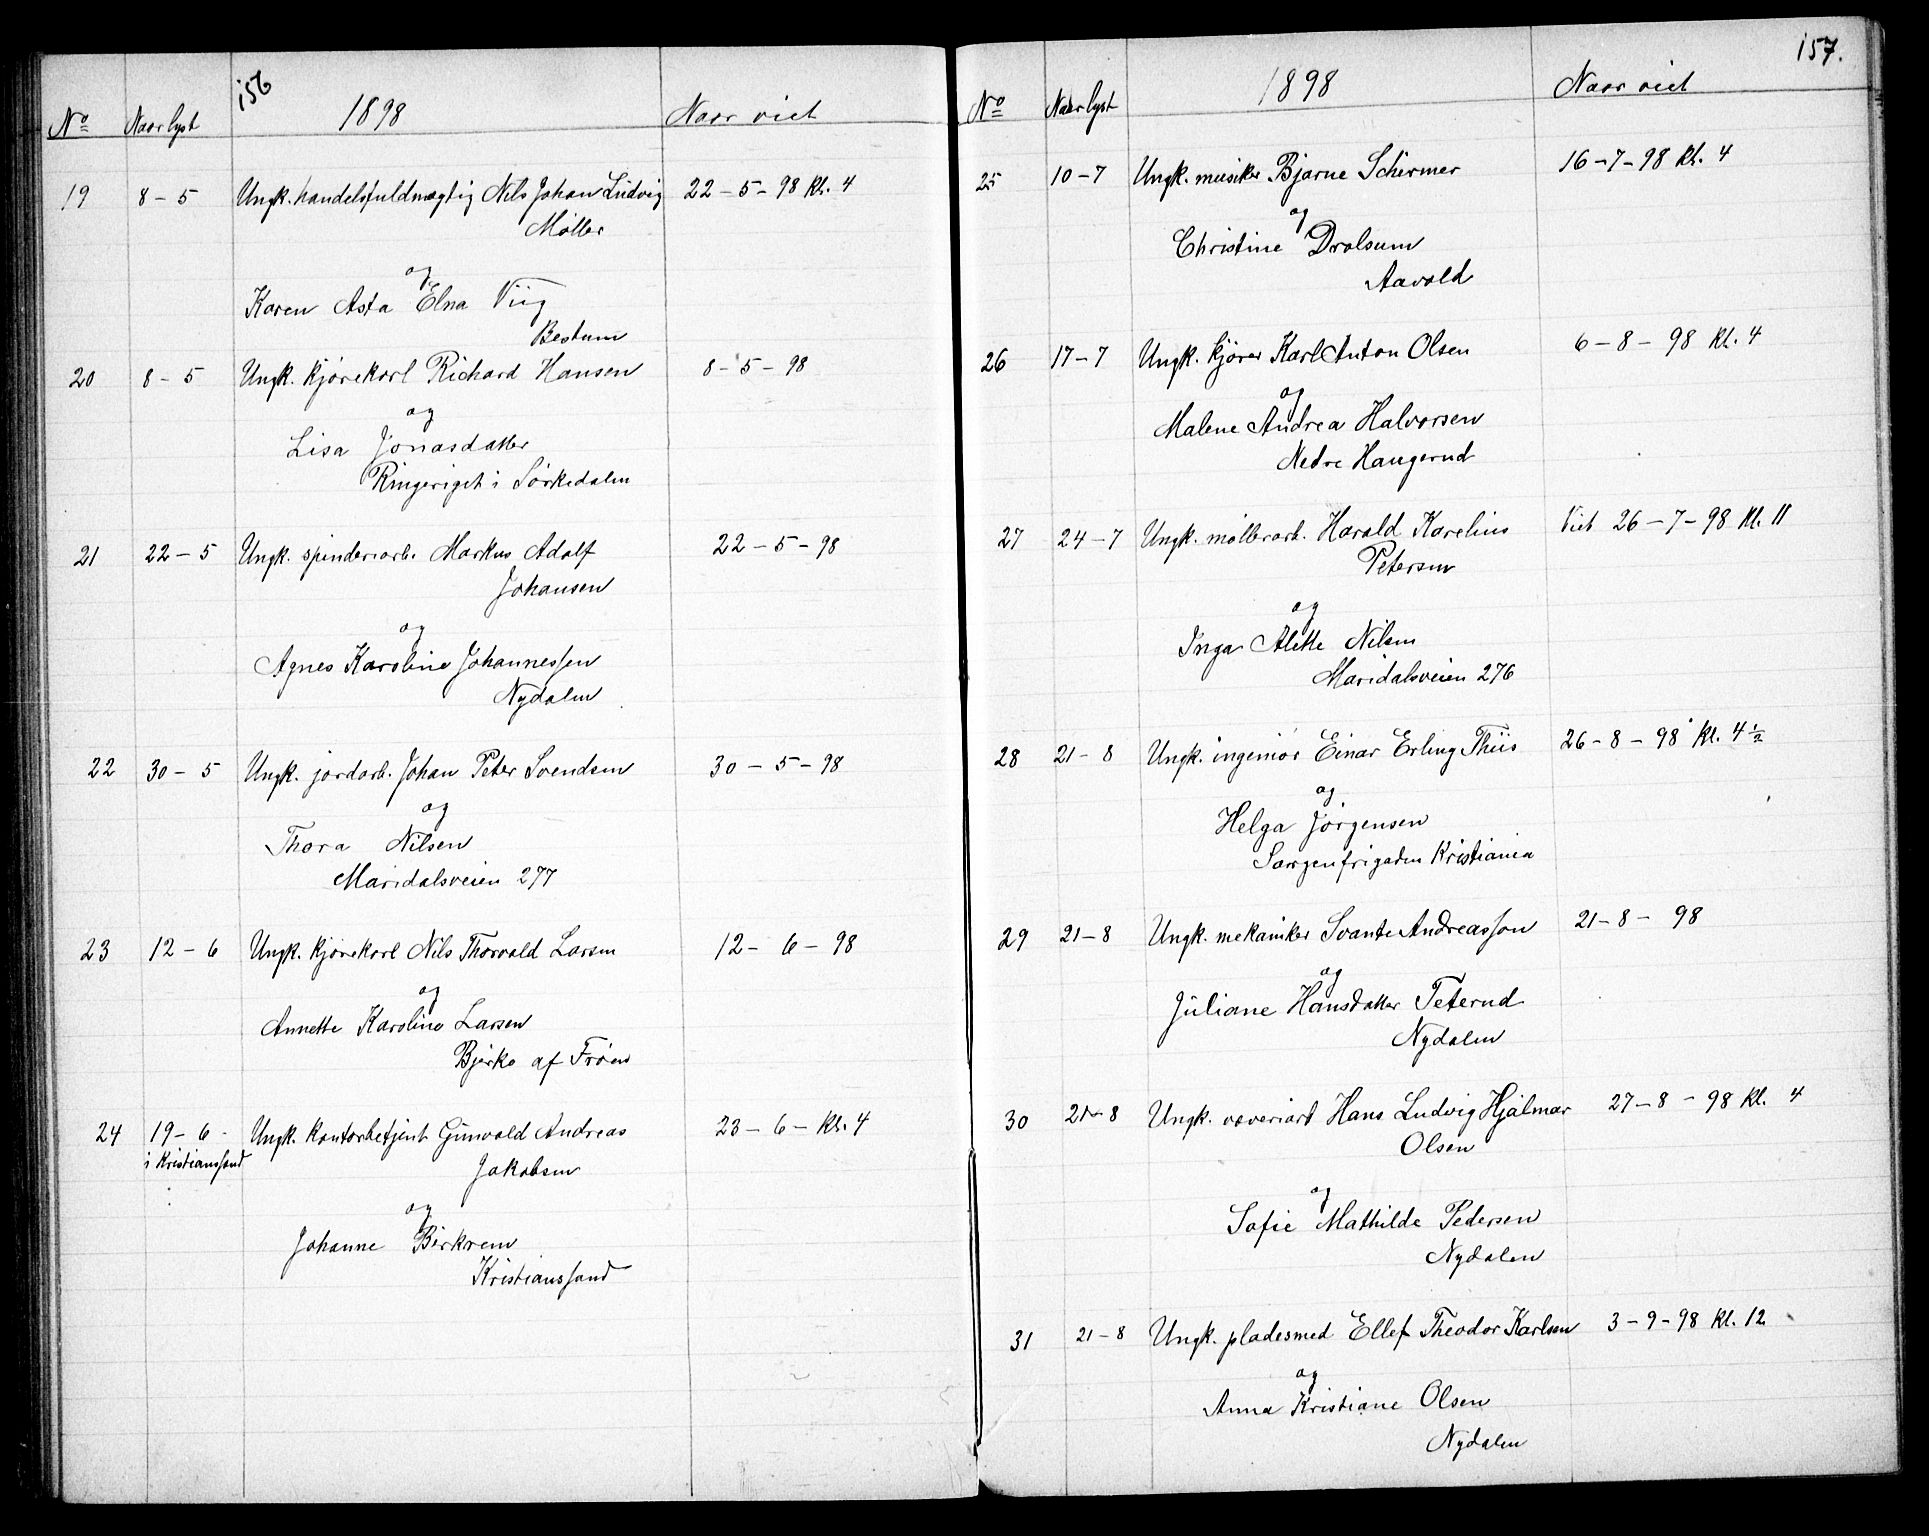 156
No Naar lyst 1898 Naar viet
19 8-5 Ungk. handelsfuldmægtig Nils Johan Ludvig 22-5-98 Kl. 4
Møller
og
Karen Asta Elna Viig
Bestum
20 8-5 Ungk. kjørekarl Richard Hansen 8-5-98
og
Lisa Jonasdatter
Ringeriget i Sørkedalen
21 22-5 Ungk. spinderiarb. Markus Adolf 22-5-98
Johansen
og
Agnes Karoline Johannessen
Nydalen
22 30-5 Ungk. jordarb. Johan Peter Svendsen 30-5-98
og
Thora Nilsen
Maridalsveien 277
23 12-6 Ungk. kjørekarl Nils Thorvald Larsen 12-6-98
og
Annette Karoline Larsen
Bjerke af Frøen
24 19-6 Ungk. kontorbetjent Gunvald Andreas 23-6- Kl. 4
i Kristianssand
Jakobsen
og
Johanne Birkrem
Kristianssand
157.
No Naar lyst 1898 Naar viet
25 10-7 Ungk. musiker Bjarne Schirmer 16-7-98 Kl. 4
og
Christine Drolsum
Aavold
26 17-7 Ungk. kjører Karl Anton Olsen 6-8-98 Kl. 4
og
Malene Andrea Halvorsen
Nedre Haugerud
27 24-7 Ungk. møllerarb. Harald Karelius Viet 26-7-98 Kl. 11
Petersen
og
Inga Alette Nilsen
Maridalsveien 276
28 21-8 Ungk. ingeniør Einar Erling Thiis 26-8-98 Kl. 4 1/2
og
Helga Jørgensen
Sorgenfrigaden Kristiania
29 21-8 Ungk. mekaniker Svante Andreasson 21-8-98
og
Juliane Hansdatter Teterud
Nydalen
30 21-8 Ungk. væveriarb Hans Ludvig Hjalmar 27-8-98 Kl. 4
Olsen
og
Sofie Mathilde Pedersen
Nydalen
31 21-8 Ungk. pladesmed Ellef Theodor Karlsen 3-9-98 Kl. 12
og
Anna Kristiane Olsen
Nydalen